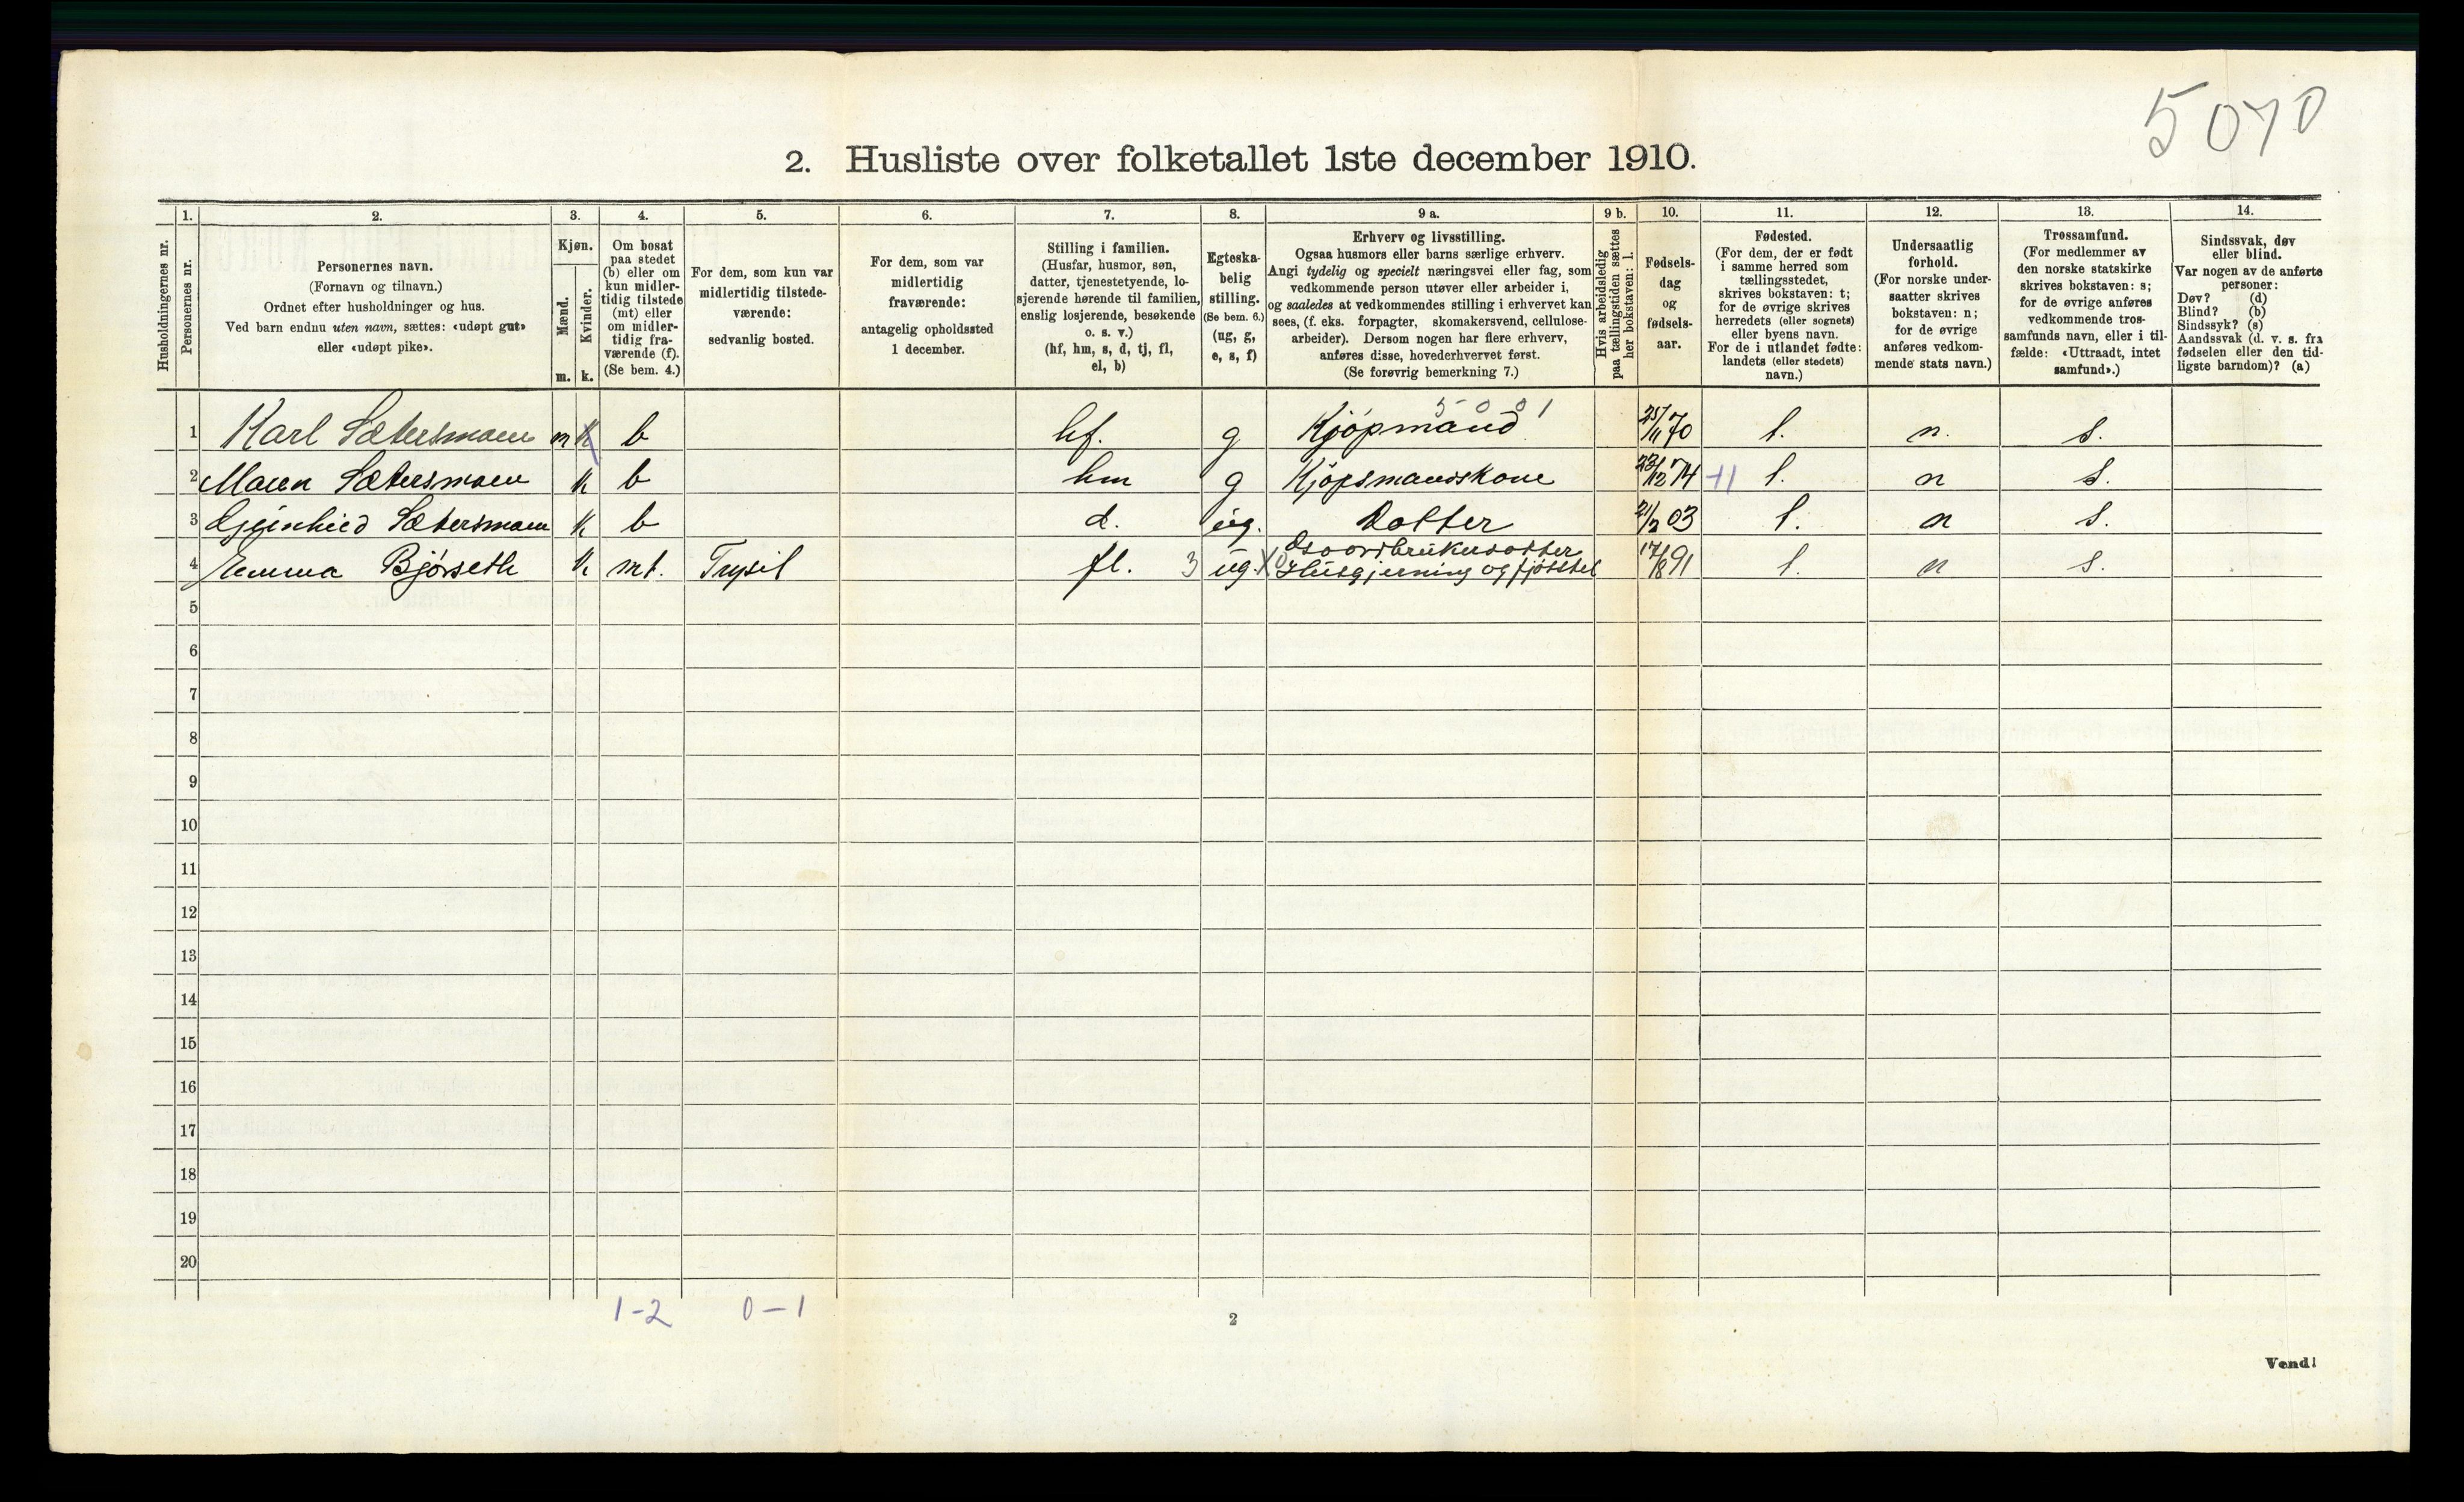 5070
2. Husliste over folketallet 1ste december 1910.
1. 2. 3. 4. 5. 6. 7. 8. 9 a. 9 b. 10. 11. 12. 13. 14.
Husholdningernes nr.
Personernes nr.
Personernes navn.
(Fornavn og tilnavn.)
Ordnet efter husholdninger og hus.
Ved barn endnu uten navn, sættes: «udøpt gut»
eller «udøpt pike».
Kjøn.
Mænd.
Kvinder.
m. k.
Om bosat
paa stedet
(b) eller om
kun midler-
tidig tilstede
(mt) eller
om midler-
tidig fra-
værende (f).
(Se bem. 4.)
For dem, som kun var
midlertidig tilstede-
værende:
sedvanlig bosted.
For dem, som var
midlertidig
fraværende:
antagelig opholdssted
1 december.
Stilling i familien.
(Husfar, husmor, søn,
datter, tjenestetyende, lo-
sjerende hørende til familien,
enslig losjerende, besøkende
o. s. v.)
(hf, hm, s, d, tj, fl,
el, b)
Egteska-
belig
stilling.
(Se bem. 6.)
(ug, g,
e, s, f)
Erhverv og livsstilling.
Ogsaa husmors eller barns særlige erhverv.
Angi tydelig og specielt næringsvei eller fag, som
vedkommende person utøver eller arbeider i,
og saaledes at vedkommendes stilling i erhvervet kan
sees, (f. eks. forpagter, skomakersvend, cellulose-
arbeider). Dersom nogen har flere erhverv,
anføres disse, hovederhvervet først.
(Se forøvrig bemerkning 7.)
Hvis arbeidsledig
paa tællingstiden sættes
her bokstaven: l.
Fødsels-
dag
og
fødsels-
aar.
Fødested.
(For dem, der er født
i samme herred som
tællingsstedet,
skrives bokstaven: t;
for de øvrige skrives
herredets (eller sognets)
eller byens navn.
For de i utlandet fødte:
landets (eller stedets)
navn.)
Undersaatlig
forhold.
(For norske under-
saatter skrives
bokstaven: n;
for de øvrige
anføres vedkom-
mende stats navn.)
Trossamfund.
(For medlemmer av
den norske statskirke
skrives bokstaven: s;
for de øvrige anføres
vedkommende tros-
samfunds navn, eller i til-
fælde: «Uttraadt, intet
samfund».)
Sindssvak, døv
eller blind.
Var nogen av de anførte
personer:
Døv? (d)
Blind? (b)
Sindssyk? (s)
Aandssvak (d. v. s. fra
fødselen eller den tid-
ligste barndom)? (a)
5001
1 Karl Sætersmoen m k b hf. g Kjöpmand 25/11 70 t. n. s.
2 Maren Sætersmoen k b hm g Kjöpsmandskone 12 74 t. n s.
3 Sætersmoen k b d. ug. Datter 21/2 03 t. n s.
4 Emma Bjørseth k mt. Trysil fl. 3 ug. Gaardbrukerdatter
Husgjerning og fjösstel 17/8 91 t. n s.
5
6
7
8
9
10
11
12
13
14
15
16
17
18
19
20
1-2 0-1
2
Vend!